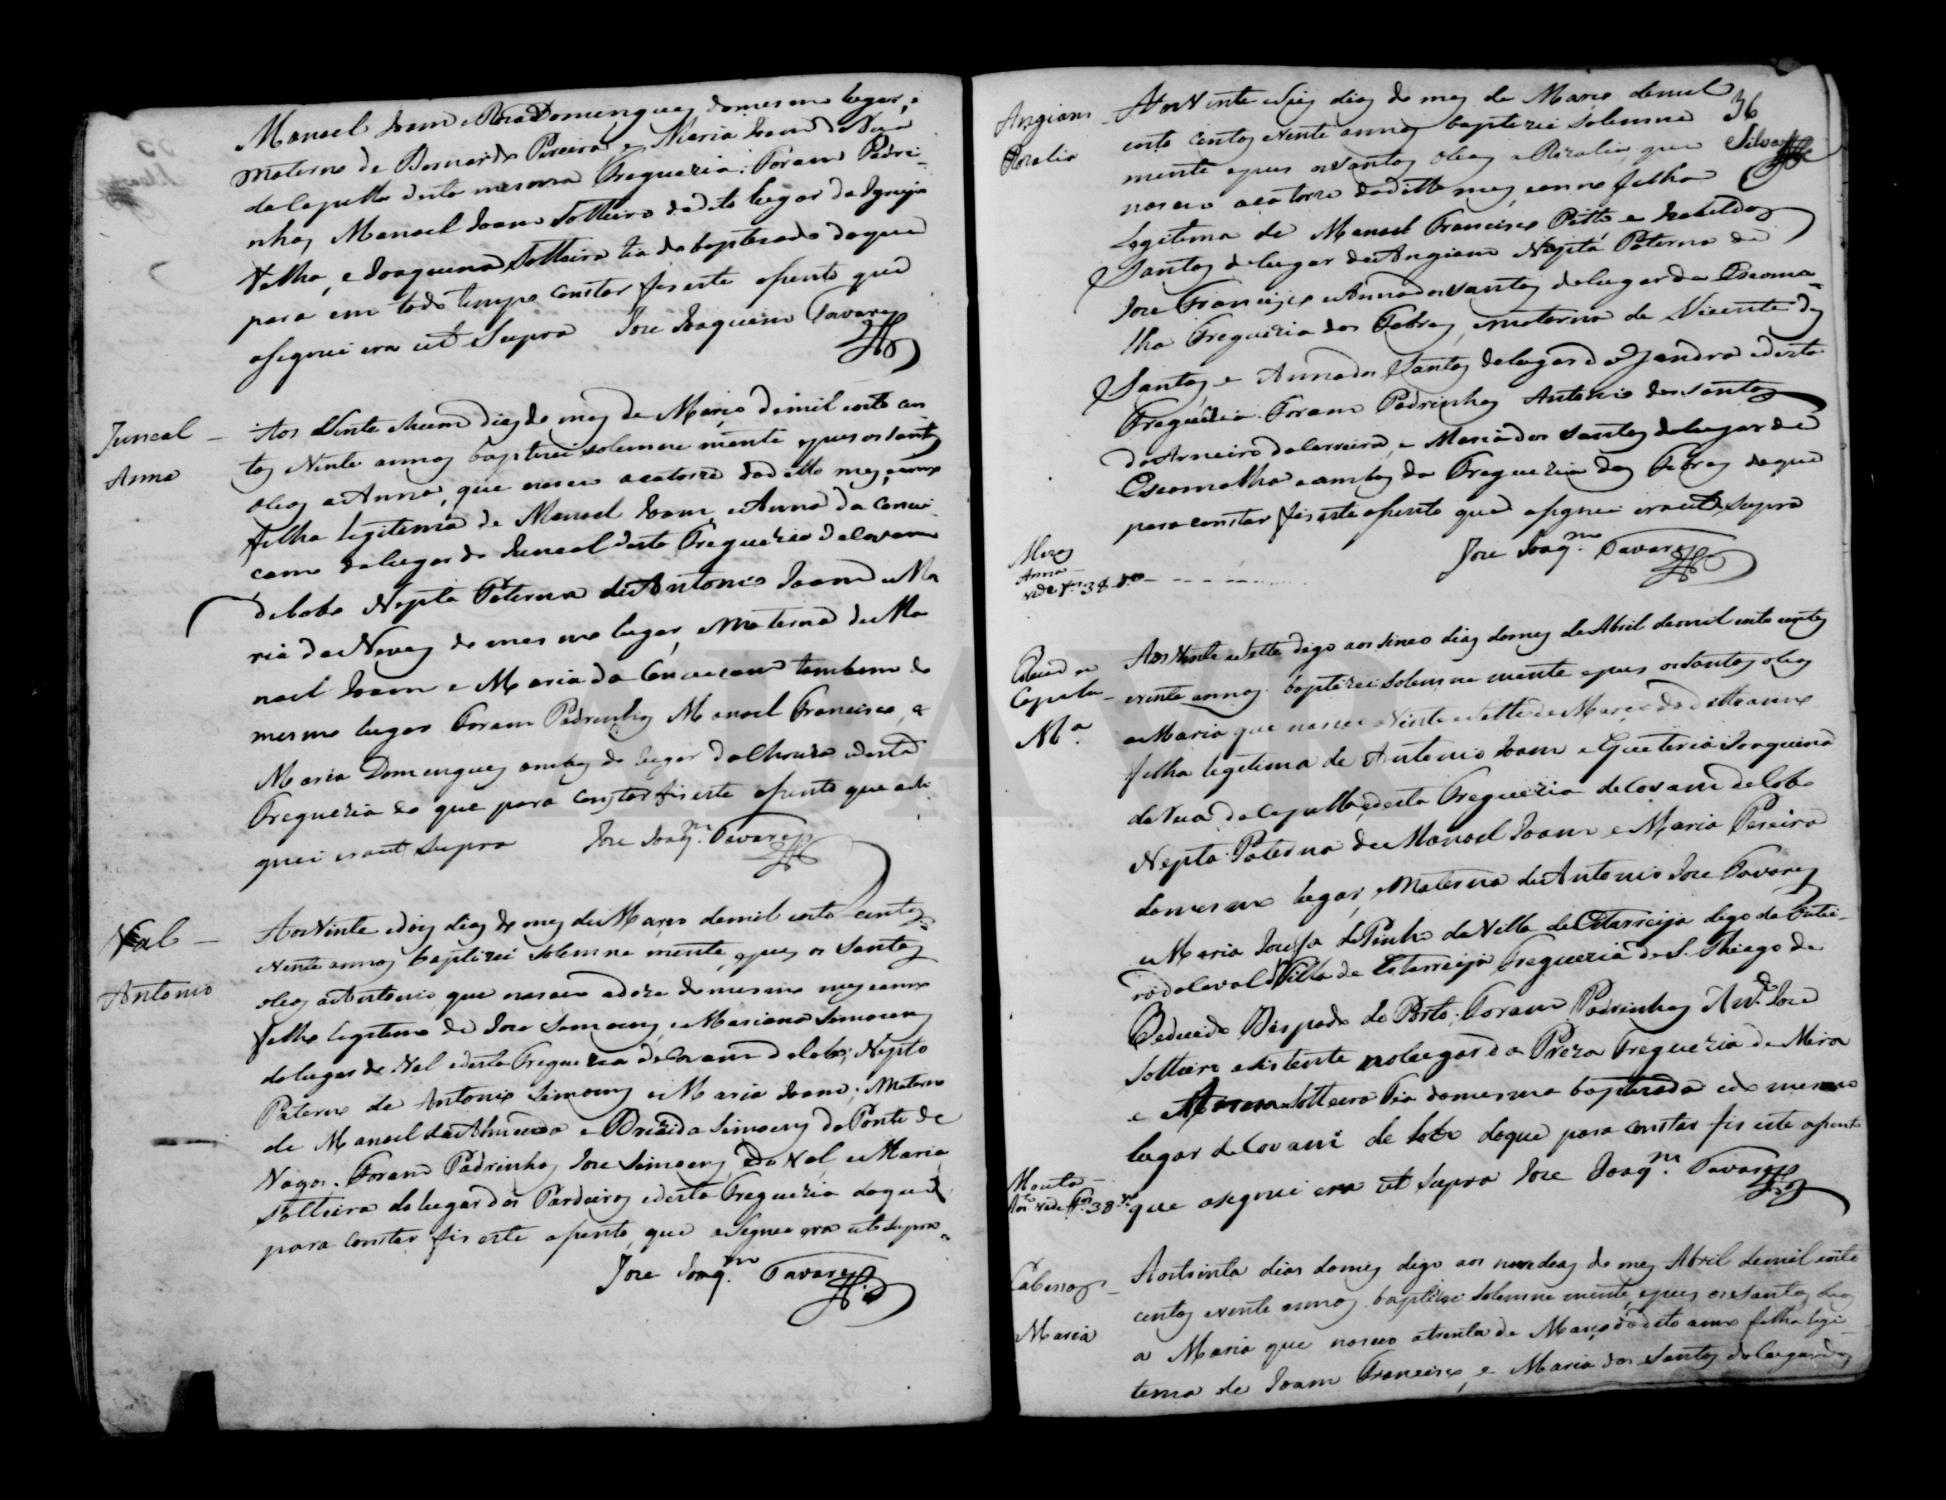 Manoel Joam e Roza Domingues do mesmo lugar, e
materno de Bernardo Pereira, e Maria Joam de Nua
da Capella desta mesma Freguezia: Foram Padri-
nhos Manoel Joam Solteiro do dito lugar da Igreja
Velha, e Joaquina Solteira tia do baptezado do que
para em todo tempo constar fis este asento que
asignei era ut Supra Joze Joaquim Tavares
Juncal -
Anna
Aos Vinte e hum dias do mes de Março de mil oito cen
tos e Vinte annos baptizei solemne mente e pus os Santos
oleos a Anna, que nasceo a catorze do ditto mes, e anno
filha legitima de Manoel Joam e Anna da Concei
cam do lugar do Juncal desta Freguezia de Covam
de Lobo Nepta Paterna de Antonio Joam e Ma
ria das Neves do mesmo lugar, e Materna de Ma
noel Joam e Maria da Conceicam tambem do
mesmo lugar Foram Padrinhos Manoel Francisco, e
Maria Domingues ambos do lugar da Choiza e desta
Freguezia do que para constar fis este asento que asi
gnei era ut Supra Joze Joaq.m Tavares
Val -
Antonio
Aos Vinte e dois dias do mes de Março de mil oito centos
e Vinte annos baptizei solemne mente, e pus os Santos
oleos a Antonio, que nasceo a doze do mesmo mes e anno
filho legitimo de Joze Simoens, e Mariana Simoens
do lugar do Val e desta Freguezia de Covam de Lobo; Nepto
Paterno de Antonio Simoens e Maria Joam; Materno
de Manoel de Almeida e Brizida Simoens da Ponte de
Vagos. Foram Padrinhos Joze Simoens, do Val e Maria
Solteira do lugar dos Pardeiros e desta Freguezia do que
para constar fis este asento, que asignei era ut Supra
Joze Joaq.m Tavares
36
Silva
Angiam -
Rozalia
Aos Vinte e seis dias do mes de Março de mil
oito centos e Vinte annos baptizei solemne
mente e pus os Santos oleos a Rozalia, que
nasceo a catorze do ditto mes, e anno filha
Legitima de Manoel Francisco Pitto e Izabel dos
Santos do lugar de Angiam Nepta Paterna de
Joze Francisco e Anna dos Santos do lugar da Escoma
lha Freguezia das Febres, e materna de Vicente dos
Santos e Anna dos Santos do lugar da Gandra e desta
Freguezia. Foram Padrinhos Antonio dos Santos
do Arneiro da Carreira, e Maria dos Santos do lugar da
Escomalha e ambos da Freguezia das Febres do que
para constar fis este asento que asignei era ut Supra
Joze Joaq.m Tavares
Anna
vide f. 38
Capela -
M.a
Aos Vinte e sette digo aos sinco dias do mes de Abril de mil oito centos
e vinte annos baptizei solemne mente e pus os Santos oleos
a Maria que nasceo a Vinte e sette de Março do ditto anno
filha legitima de Antonio Joam e Quiteria Joaquina
da Nua da Capella, e desta Freguezia de Covam de Lobo
Nepta Paterna de Manoel Joam e Maria Pereira
do mesmo lugar, e Materna de Antonio Joze Tavares
e Maria Josefa de Pinho da Villa de Estarreija digo do Outei-
ro do Laval Villa de Estarreija Freguezia de S. Thiago de
Beduido Bispado do Porto. Foram Padrinhos Joze
Solteiro asistente no lugar da Preza Freguezia de Mira
e Solteira Tia da mesma baptizada e do mesmo
lugar de Covam de Lobo do que para constar fis este asento
que asignei era ut Supra Joze Joaq.m Tavares
Monte -
vide f. 38
Cabessos -
Maria
Aos trinta dias do mes digo aos nove dias do mes Abril de mil oito
centos e vinte annos baptizei solemne mente, e pus os Santos oleos
a Maria que nasceo a trinta de Março do dito anno filha legi
tima de Joam Francisco, e Maria dos Santos do lugar dos